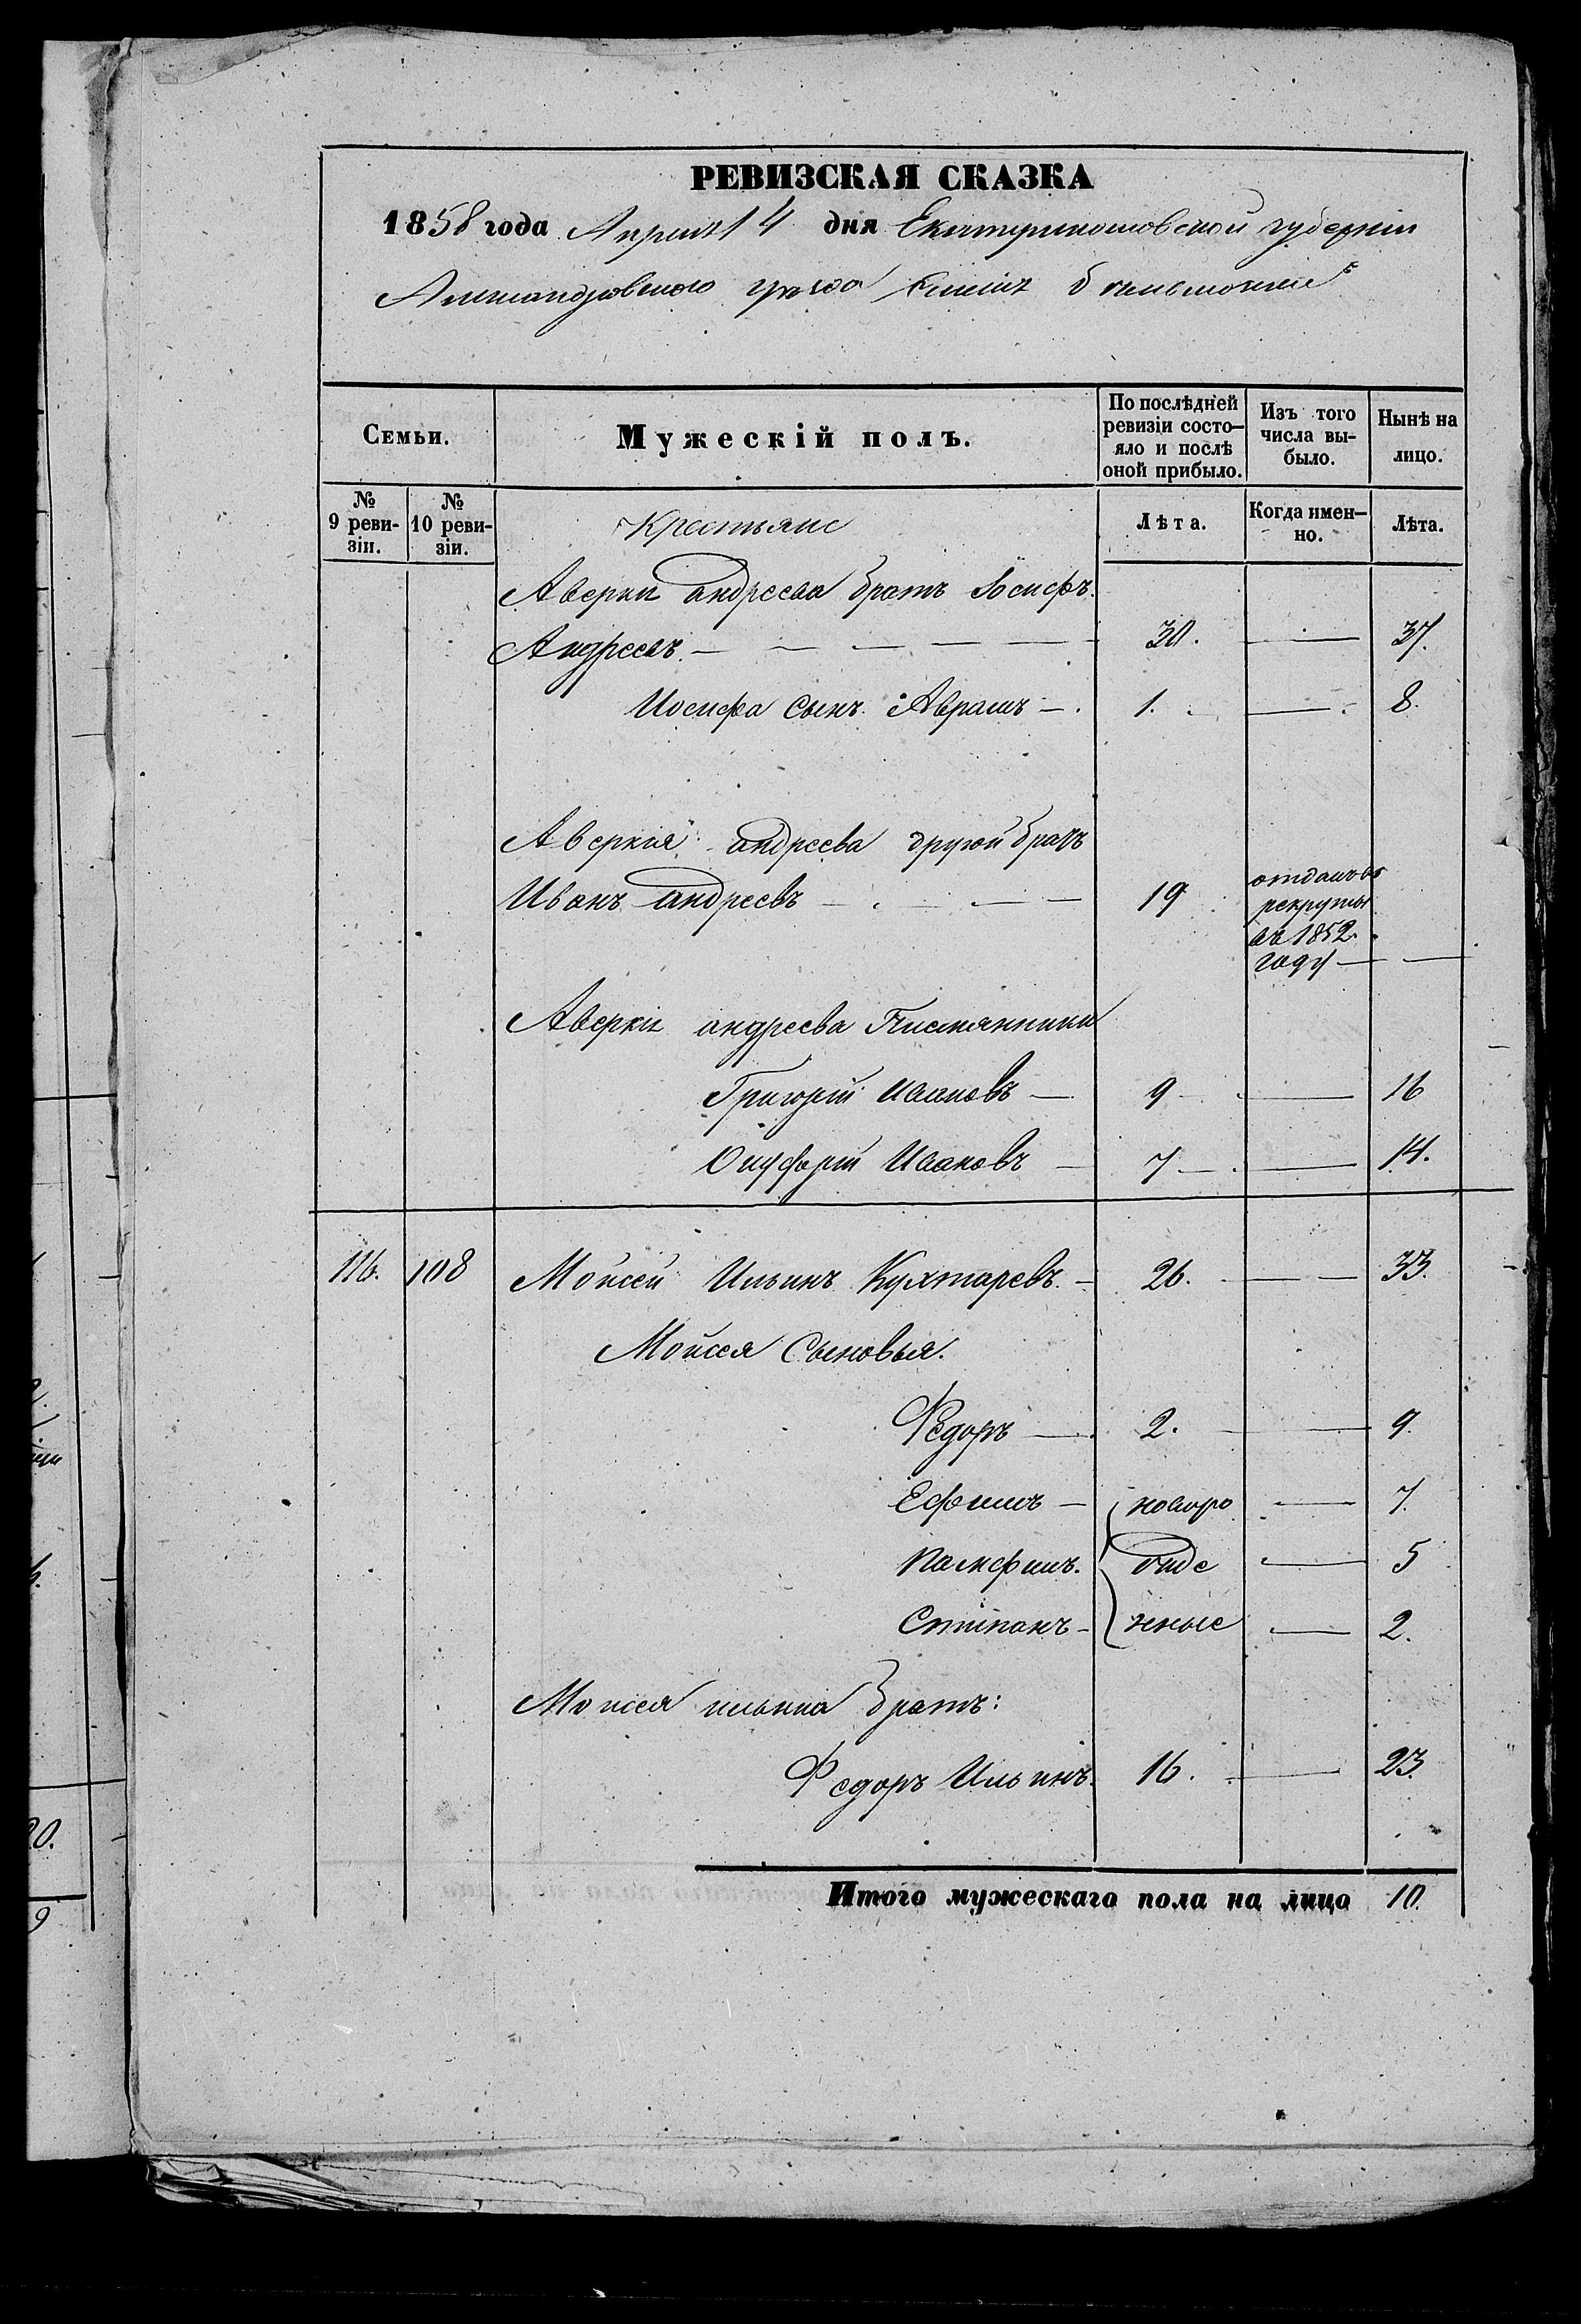 РЕВИЗСКАЯ СКАЗКА
1858 года Апреля 4 дня Екатеринославской губерніи
Александровского уезда
Семьи. Мужескій полъ. По послѣдней ревизіи состо- яло и послѣ оной прибыло. Изъ того числа вы- было. Нынѣ на лицо.
№ 9 реви- зіи. № 10 реви- зіи. Крестьяне Лѣта. Когда имен- но. Лѣта.
Аверки андреева братъ Іосифъ
Андреевъ. 30. 37.
Иосифа Сынъ Аврамъ 1. 8.
Аверкія андреева другой братъ
Иванъ андреевъ 19 отданъ въ рекруты въ 1852 году
Аверки андреева Племянники
Григорій Ивановъ 9 16
Онуфрій Ивановъ 7 14.
116. 108 Мойсей Ильинъ Кухтаревъ 26. 33.
Мойсея Сыновья.
Федоръ 2. 9.
Ефимъ новоро 7.
Памфилъ. жде 5
Степанъ нные 2.
Мойсея ильина братъ:
Федоръ Ильинъ. 16. 23.
Итого мужескаго пола на лицо 10.
20.
9